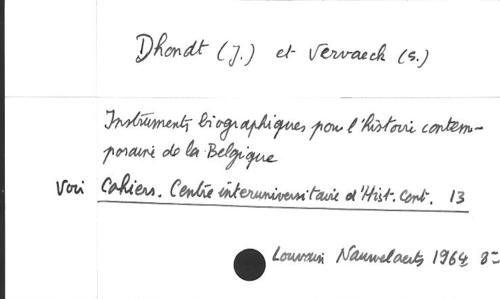 Dhondt (J.) et Vervaeck (S.)
Instruments biographiques pour l'histoire contem-
poraine de la Belgique
Voir Cahiers. Centre interuniversitaire d'Hist. Cont. 13
Louvain Nauwelaerts 1964 8=